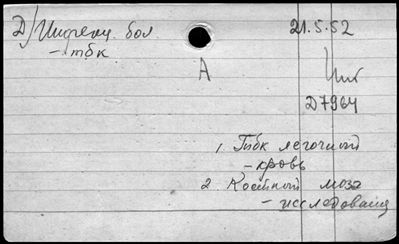 Д/ Инфекц. бол 21.5.52
- тбк
А Инф
Д7964
1. Тбк легочный
- кровь
2. Костный мозг
- исследования